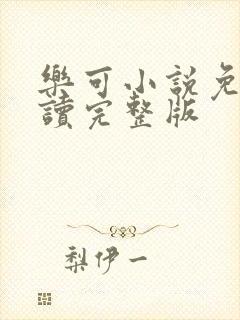 樂可小說免
讀完整版
梨伊一